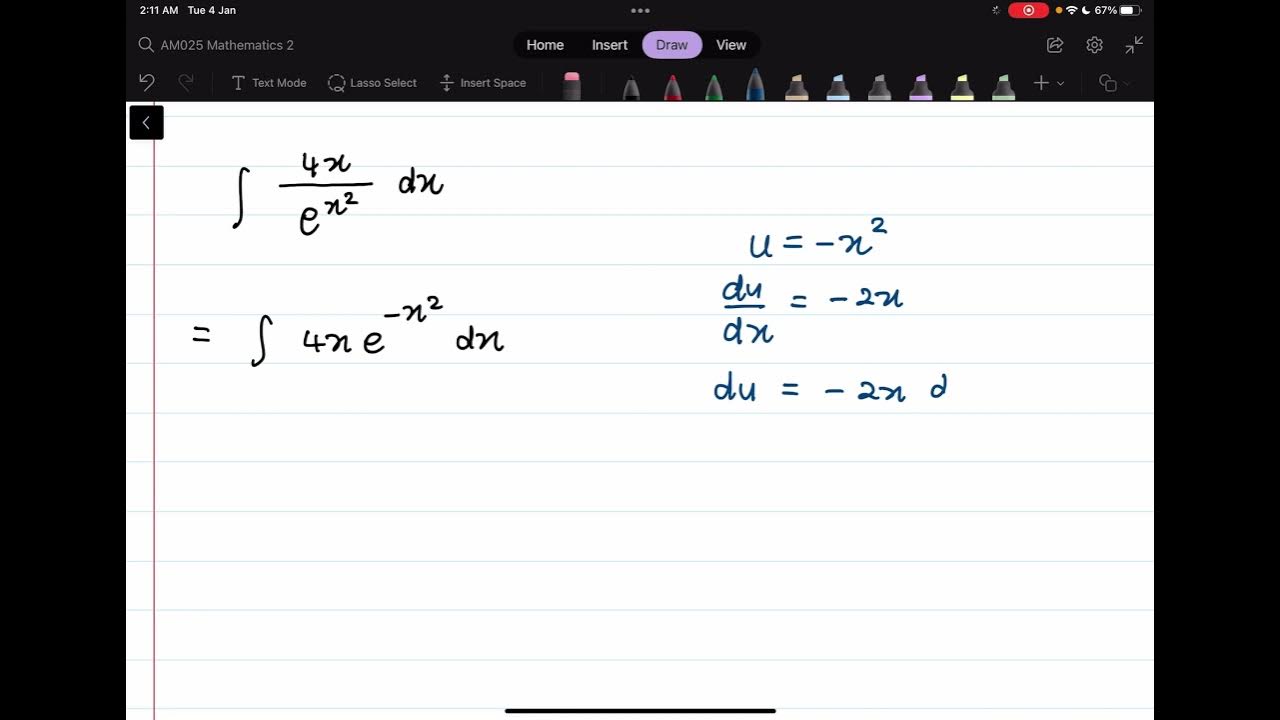 2:11 AM Tue 4 Jan 67%
AM025 Mathematics 2
Home Insert Draw View
Text Mode Lasso Select Insert Space
∫ 4x/e^(x²) dx
= ∫ 4x e^(-x²) dx
u = -x²
du/dx = -2x
du = -2x d